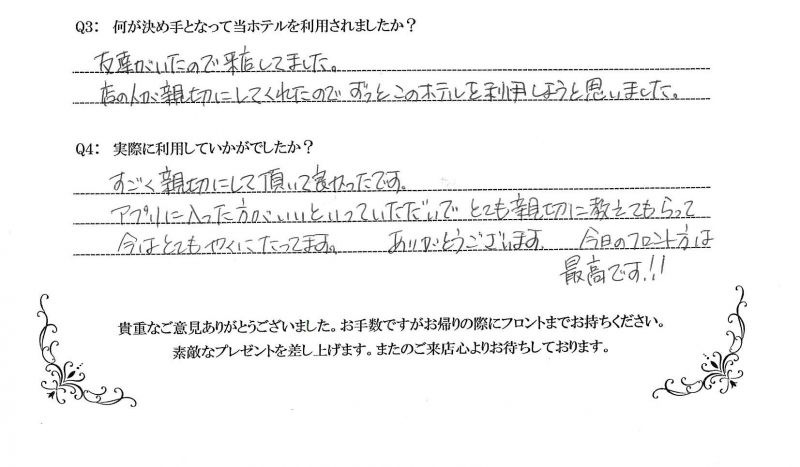 Q3: 何が決め手となって当ホテルを利用されましたか?
友達がいたので来店してました。
店の人が親切にしてくれたのでずっとこのホテルを利用しようと思いました。
Q4: 実際に利用していかがでしたか?
すごく親切にして頂いて良かったです。
アプリに入った方がいいといっていただいでとても親切に教えてもらって
今はとてもやくにたってます。 ありがとうございます 今日のフロント方は
最高です!!
貴重なご意見ありがとうございました。お手数ですがお帰りの際にフロントまでお持ちください。
素敵なプレゼントを差し上げます。またのご来店心よりお待ちしております。